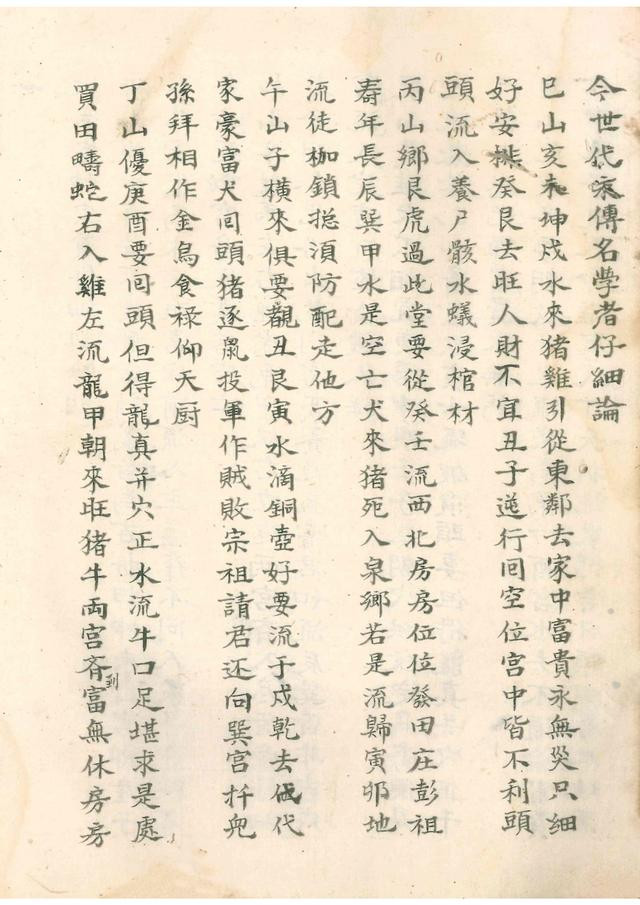 今世代來傳名學者仔細論
巳山亥未坤戍水來猪雞引從東鄰去家中富貴永無災只細
好安排癸艮去旺人財不宜丑子逆行回空位宮中皆不利頭
頭流入養尸骸水蟻浸棺材
丙山鄉艮虎過此堂要從癸壬流西北房房位位發田庄彭祖
壽年長辰巽甲水是空亡犬來猪死入泉鄉若是流歸寅卯地
流徒枷鎖揔須防配走他方
午山子橫來俱要觀丑艮寅水滴銅壺好要流于戍乾去代代
家豪富犬回頭猪逐鼠投軍作賊敗宗祖請君还向巽宮扦兒
孫拜相作金烏食祿仰天厨
丁山優庚酉要回頭但得龍真并穴正水流牛口足堪求是處
買田疇蛇右入雞左流龍甲朝來旺猪牛両宮斉到富無休房房